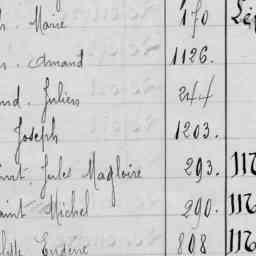 Marie 170
Amand 1126.
Julien 244
Joseph 1203.
int. Jules Magloire 293. 117
aint Michel 290. 116
Eugène 808 116